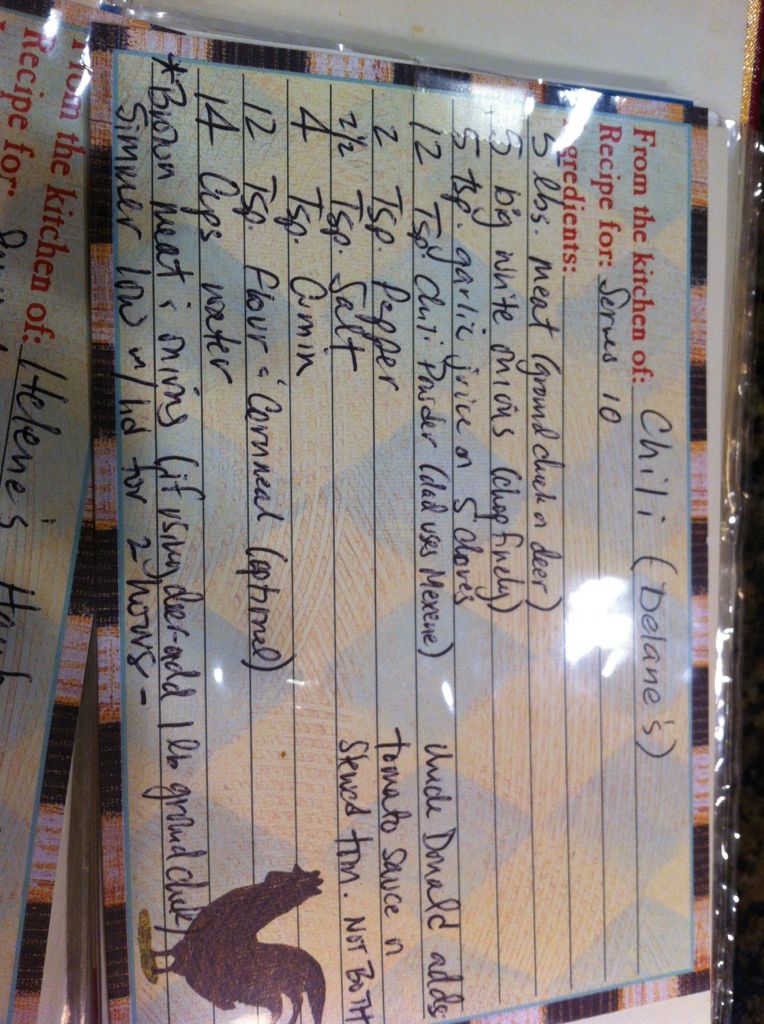 From the kitchen of: Chili (Delane's)
Recipe for: Serves 10
gredients:
5 lbs. meat (ground chuck or deer)
5 big white onions (chop finely)
5 tsp. garlic juice or 5 cloves
12 Tsp. Chili Powder (dad uses Mexene)
2 Tsp. Pepper
2 1/2 Tsp. Salt
4 Tsp. Cumin
12 Tsp. flour & Cornmeal (optional)
14 Cups water
Uncle Donald adds
tomato sauce or
Stewed tom. NOT BOTH
*Brown meat & onions (if using deer-add 1 lb ground chuck)
Simmer low w/lid for 2 hours -
From the kitchen of: Helene's
Recipe for: